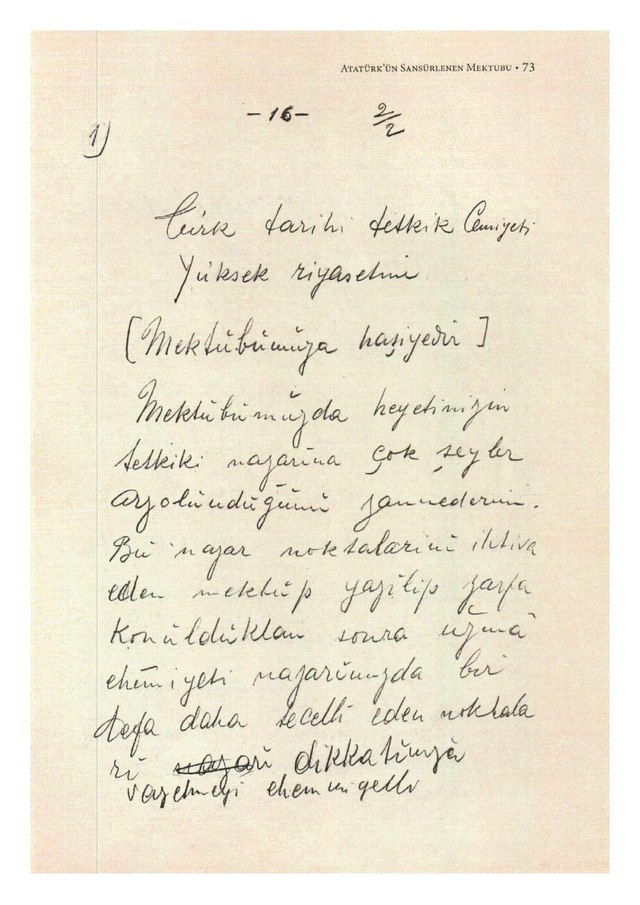 ATATÜRK'ÜN SANSÜRLENEN MEKTUBU • 73
-16- 2/2
1)
Türk tarihi tetkik Cemiyeti
Yüksek riyasetine
[Mektübümüza haşiyedir]
Mektübümüzda heyetinizin
tetkiki nazarına çok şeyler
arzolündüğünü zannederim.
Bü nazar noktalarinü ihtiva
eden mektüp yazilip zarfa
konüldüktan sonra
ehemiyeti nazarümüzda bir
defa daha tecelli eden noktala
ri nazari dikkatünüza
vazetmeyi ehemmiyetli